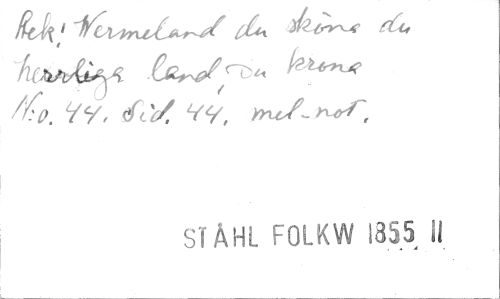 Ack! Wermeland du sköna du
herrliga land, Du krona
N:o. 44. Sid. 44. mel-not.
STÅHL FOLKW 1855 II